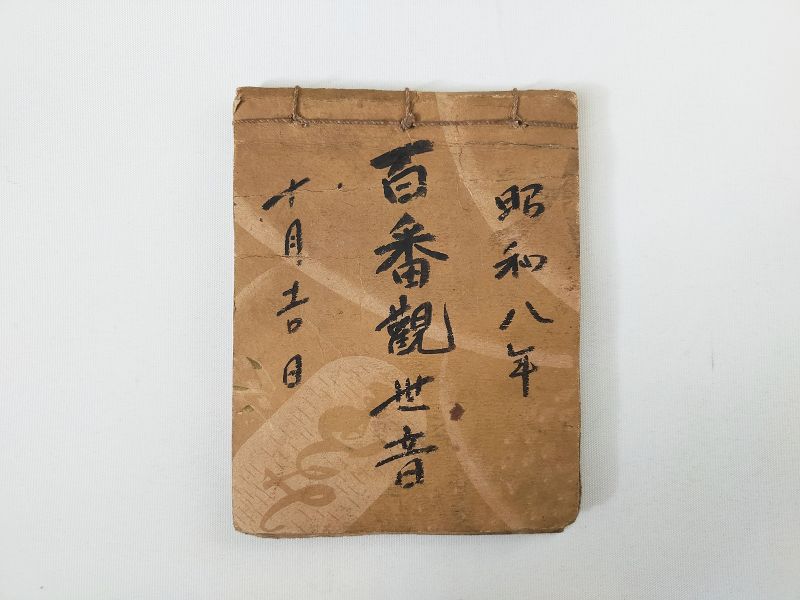 昭和八年
百番觀世音
十月吉日